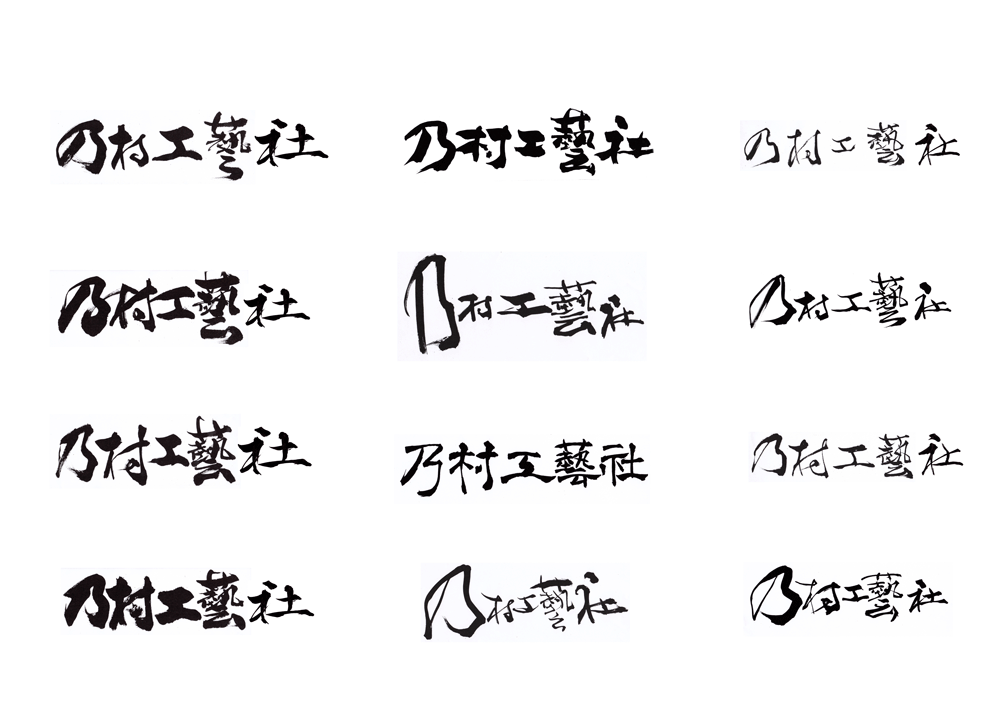 乃村工藝社 乃村工藝社 乃村工藝社
乃村工藝社 乃村工藝社 乃村工藝社
乃村工藝社 乃村工藝社 乃村工藝社
乃村工藝社 乃村工藝社 乃村工藝社